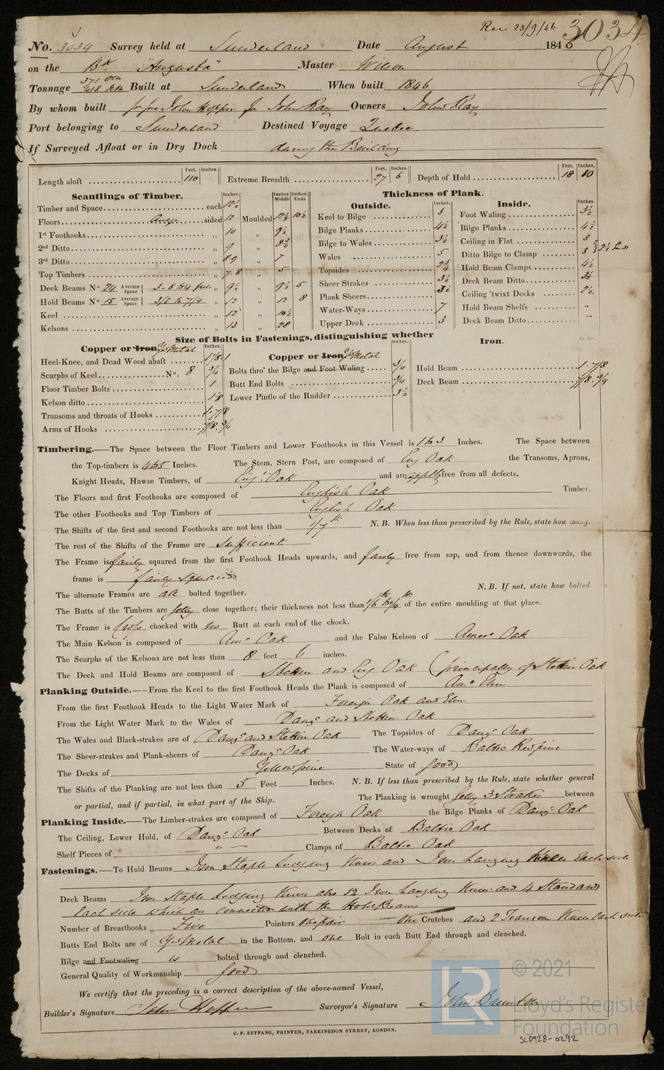 Rec 23/9/46 3034
No. 3034 Survey held at Sunderland Date August 1846
on the Bk "Augusta" Master Wilson
Tonnage 371 Old 418 New Built at Sunderland When built 1846
By whom built John Hopper Jr John Kay Owners John Kay
Port belonging to Sunderland Destined Voyage Quebec
If Surveyed Afloat or in Dry Dock during the Building
Length aloft 110 Extreme Breadth 27 6 Depth of Hold 18 10
Feet. Inches. Feet. Inches. Feet. Inches.
Scantlings of Timber.
Timber and Space each 12½
Floors sided 12 Moulded
1st Foothooks " 10 " 9½
2nd Ditto " 9 " 8½
3rd Ditto " 8½ " 7
Top Timbers " 7.8 " 5
Deck Beams No. 24 Average Space " 9½ " 9½ 5
Hold Beams No. 15 Average Space " 12 " 12 8
Keel " 12 " 10½
Kelsons " 13 " 28
Thickness of Plank.
Outside.
Keel to Bilge 3
Bilge Planks 4½
Bilge to Wales 3½
Wales 5
Topsides
Sheer Strakes 3½
Plank Sheers
Water-Ways 7
Upper Deck 3
Inside.
Foot Waling 3½
Bilge Planks 4½
Ceiling in Flat 3
Ditto Bilge to Clamp 3
Hold Beam Clamps 4½
Deck Beam Ditto 3½
Ceiling 'twixt Decks 2½
Hold Beam Shelfs "
Deck Beam Ditto "
Size of Bolts in Fastenings, distinguishing whether
Copper or Iron. Y Metal
Heel-Knee, and Dead Wood abaft 1 1/8
Scarphs of Keel No. 8 3/4
Floor Timber Bolts 1
Kelson ditto 1 1/8
Transoms and throats of Hooks 1.7/8
Arms of Hooks 7/8.3/4
Copper or Iron. Y Metal
Bolts thro' the Bilge and Foot Waling 3/4
Butt End Bolts 3/4
Lower Pintle of the Rudder 3½
Iron.
Hold Beam 1.7/8
Deck Beam 7/8.3/4
Timbering.—The Space between the Floor Timbers and Lower Foothooks in this Vessel is 1 to 3 Inches. The Space between
the Top-timbers is 4 to 5 Inches. The Stem, Stern Post, are composed of Eng Oak the Transoms, Aprons,
Knight Heads, Hawse Timbers, of Eng. Oak and are free from all defects.
The Floors and first Foothooks are composed of English Oak Timber.
The other Foothooks and Top Timbers of English Oak
The Shifts of the first and second Foothooks are not less than 1/7th N.B. When less than prescribed by the Rule, state how many.
The rest of the Shifts of the Frame are Sufficient
The Frame is fairly squared from the first Foothook Heads upwards, and fairly free from sap, and from thence downwards, the
frame is fairly squared N.B. If not, state how bolted.
The alternate Frames are all bolted together.
The Butts of the Timbers are fully close together; their thickness not less than 1/6th to 1/4th of the entire moulding at that place.
The Frame is chocked with no Butt at each end of the chock.
The Main Kelson is composed of Amn Oak and the False Kelson of Amer Oak
The Scarphs of the Kelsons are not less than 8 feet 6 inches.
The Deck and Hold Beams are composed of Stettin and Eng Oak (principally of Stettin Oak
Planking Outside.—From the Keel to the first Foothook Heads the Plank is composed of Amn Elm
From the first Foothook Heads to the Light Water Mark of Foreign Oak and Elm
From the Light Water Mark to the Wales of Dang and Stettin Oak
The Wales and Black-strakes are of Dang and Stettin Oak The Topsides of Dang Oak
The Sheer-strakes and Plank-sheers of Dang Oak The Water-ways of Baltic Redpine
The Decks of Yellowpine State of Good
The Shifts of the Planking are not less than 5 Feet Inches. N.B. If less than prescribed by the Rule, state whether general
or partial, and if partial, in what part of the Ship. The Planking is wrought fully 3 Strakes between
Planking Inside.—The Limber-strakes are composed of Foreign Oak the Bilge Planks of Dang Oak
The Ceiling, Lower Hold, of Dang Oak Between Decks of Baltic Oak
Shelf Pieces of " Clamps of Baltic Oak
Fastenings.—To Hold Beams Iron Staple Lodging Knees and Iron hanging Knees Each side
Deck Beams Iron Staple Lodging Knees also 12 Iron hanging Knees and 4 Standard
Each side which are connected with the Hold Beams
Number of Breasthooks Five Pointers One Crutches and 2 Transom Knees each side
Butts End Bolts are of Y Metal in the Bottom, and one Bolt in each Butt End through and clenched.
Bilge and Footwaling is bolted through and clenched.
General Quality of Workmanship Good
We certify that the preceding is a correct description of the above-named Vessel,
Builder's Signature John Hopper Surveyor's Signature John Brunton
C. F. SEYFANG, PRINTER, FARRINGDON STREET, LONDON.
LR © 2021
Lloyd's Register
Foundation
SLD928-0292